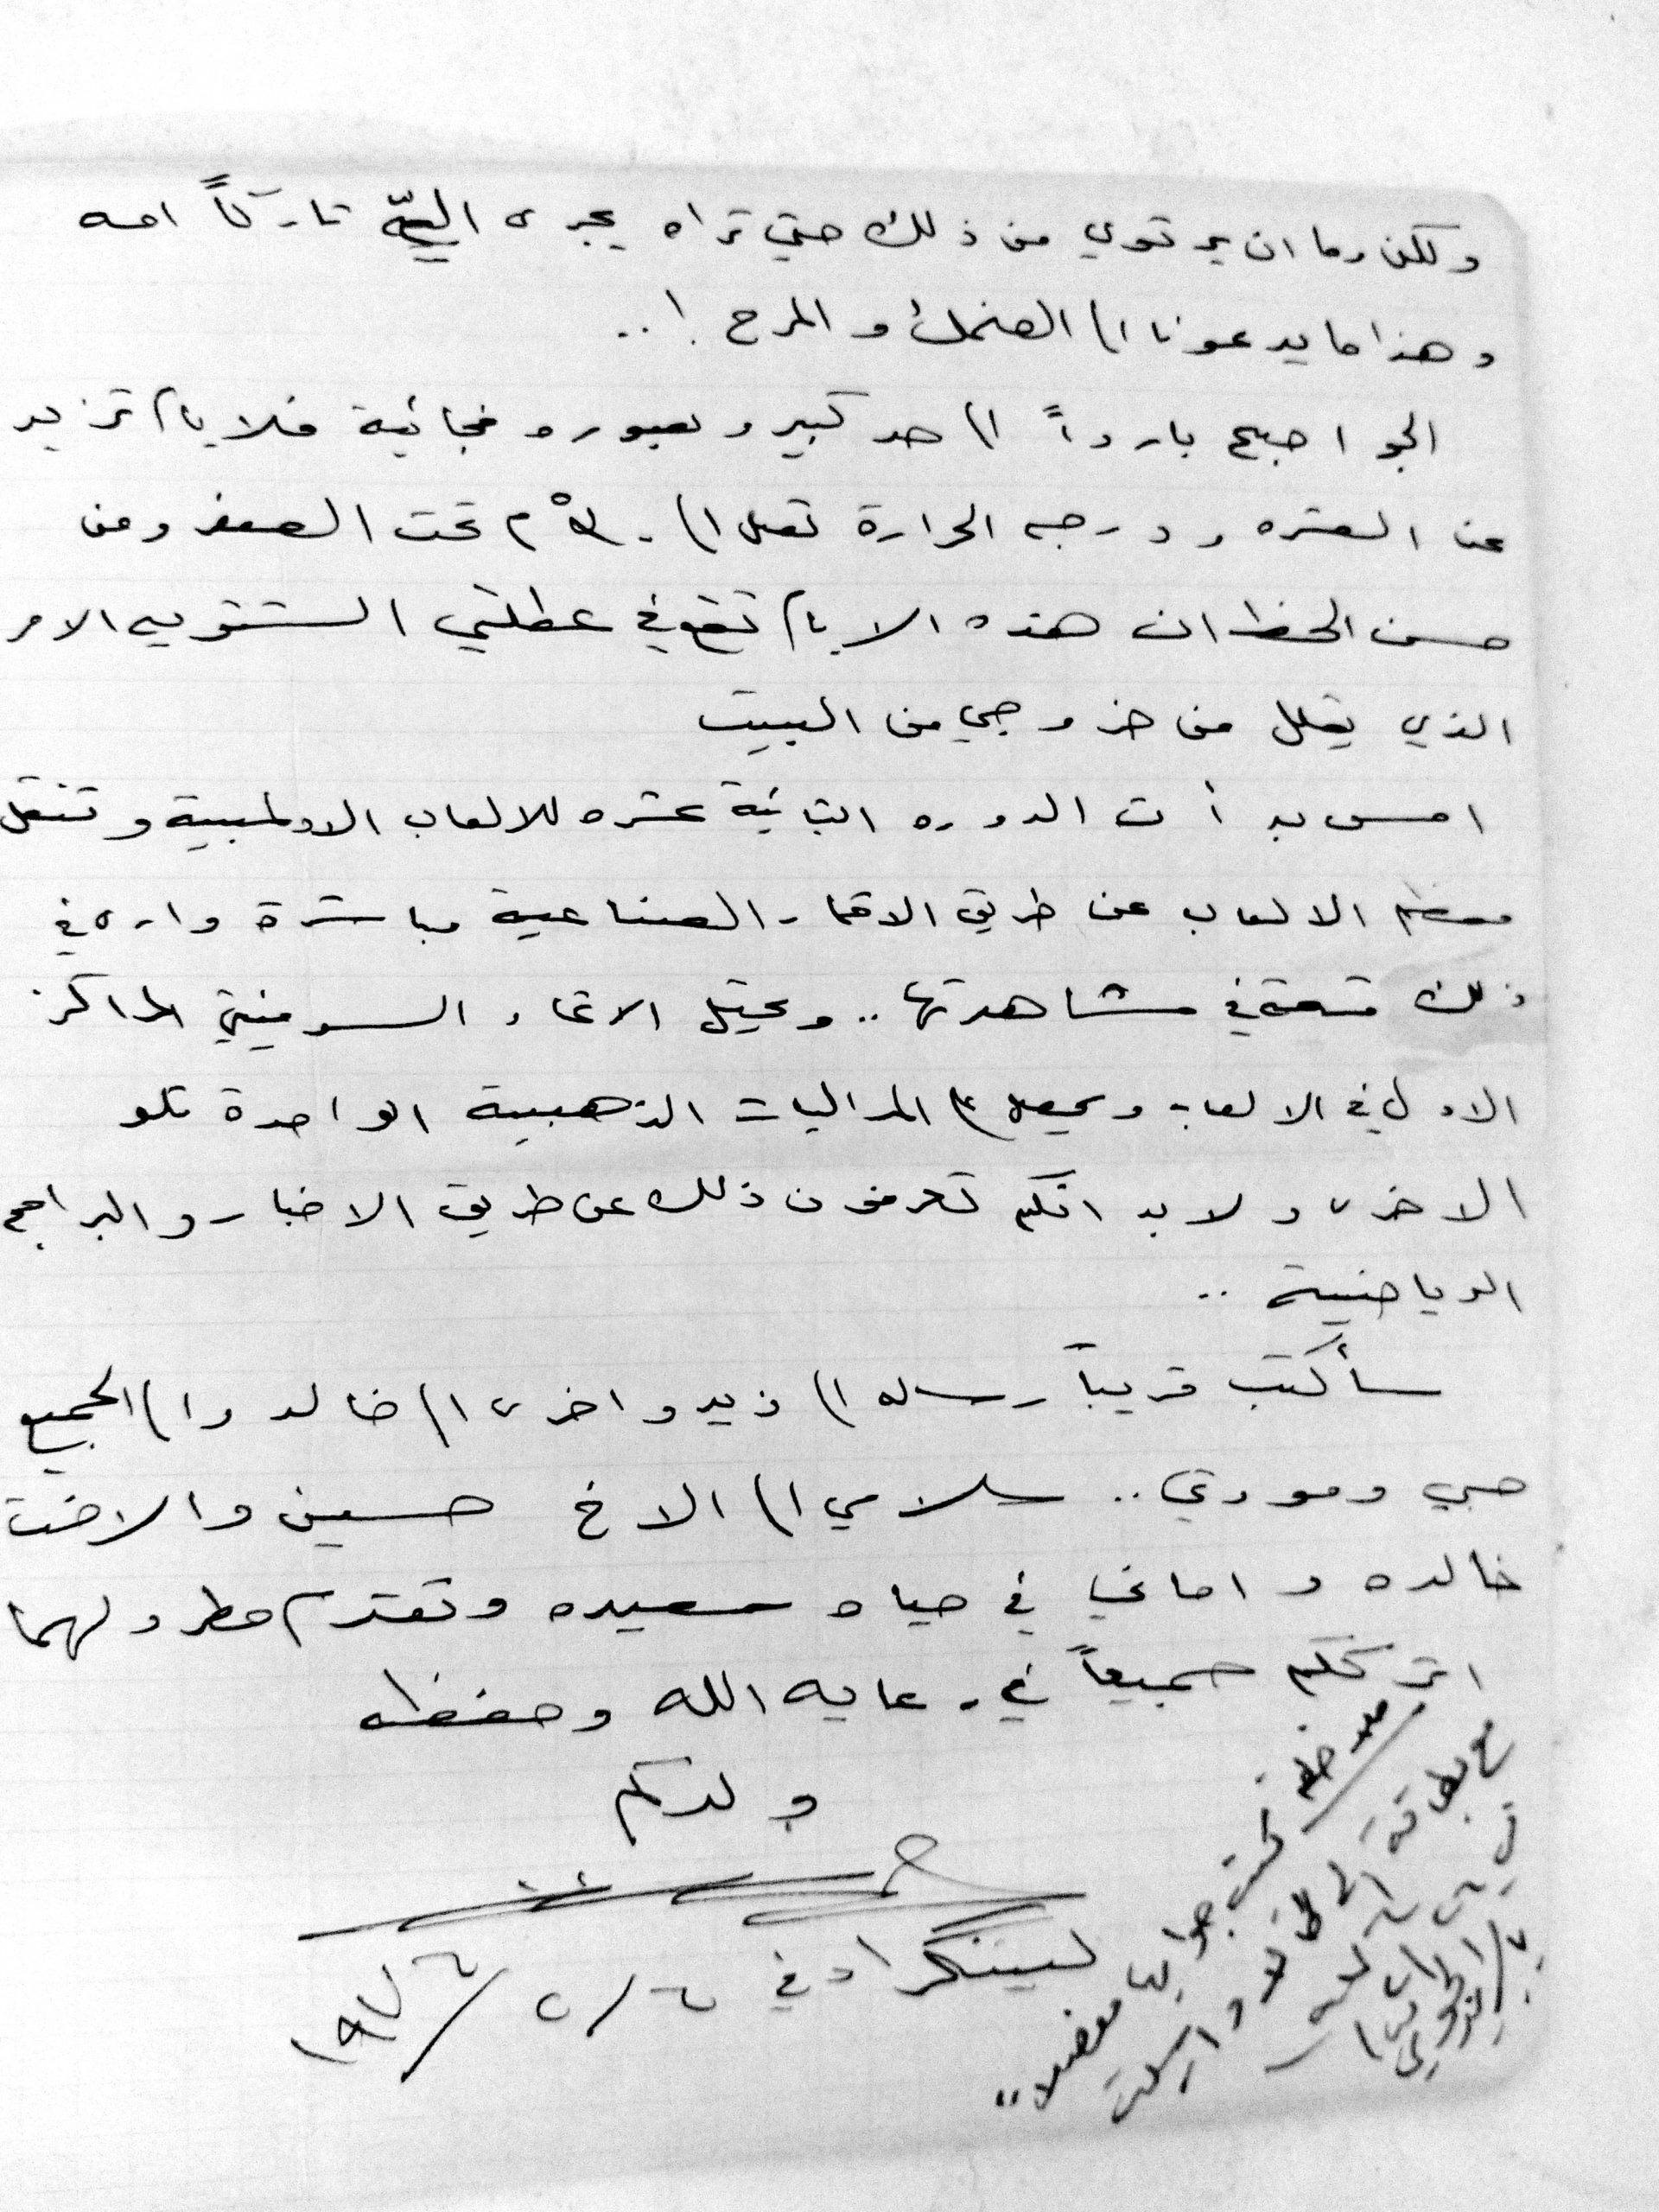 ولكن وما ان يرتوي من ذلك حتى تراه يجرى اليّ تاركاً امه
وهذا ما يدعونا الى الضحك و المرح !..
الجو اصبح بارداً الى حد كبير وبصوره فجائية فلايام تزيد
عن العشره ودرجه الحرارة تصل الى ْم تحت الصفر ومن
حسن الحظ ان هذه الايام تقع في عطلتي الشتويه الامر
الذي يقلل من خروجي من البيت
امس بدأت الدوره الثانية عشره للالعاب الاولمبية وتنقل
معظم الالعاب عن طريق الاقمار الصناعية مباشرة وارى في
ذلك متعة في مشاهدتها .. ويحتل الاتحاد السوفيتي المراكز
الاولى في الالعاب ويحصل على المداليات الذهبية الواحدة تلو
الاخرى ولا بد انكم تعرفون ذلك عن طريق الاخبار والبرامج
الرياضية ..
سأكتب قريباً رساله الى زيد واخرى الى خالد والى الجميع
حبي ومودتي .. سلامي الى الاخ حسين والاخت
خالده واماني في حياه سعيده وتقدم مطرد لهما
اترككم جميعاً في رعايه الله وحفظه
ولدكم
لينينكراد في ٦/٢/١٩٧٦
ملاحظه كتب جوابها مفصلا"
مع بطاقة الى خالد وارسلت